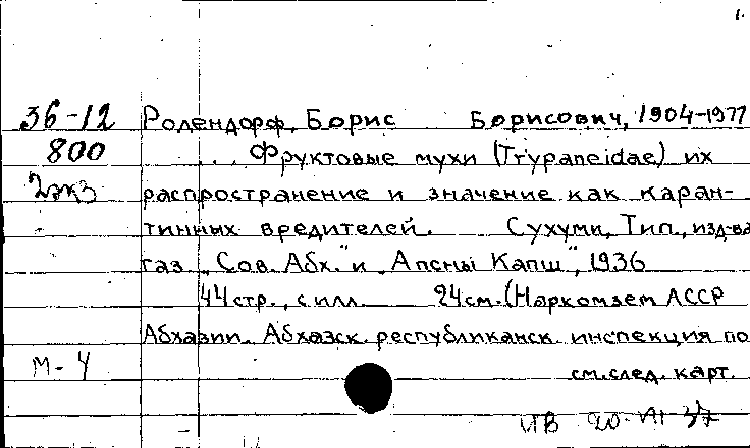 1.
36-12 Ролендорф, Борис Борисович, 1904-1977
800 ... Фруктовые мухи (Trypaneidae) их
2экз распространение и значение как каран-
тинных вредителей. Сухуми, Тип., изд-ва
газ. „Сов. Абх." и „Апсны Капш", 1936
44 стр., с илл. 24 см. (Наркомзем АССР
Абхазии. Абхазск. республиканск. инспекция по
М-4 см. след. карт.
ИВ 20-VII 37